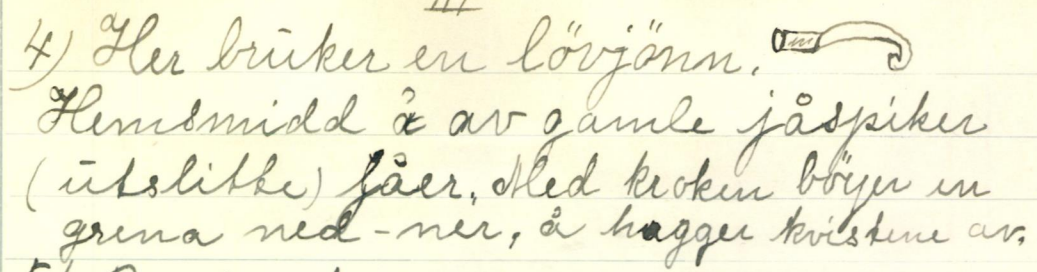 4) Her bruker en lövjönn.
Hemsmidd å av gamle jåspiker
(utslitte) ljåer. Med kroken böyer en
grena ned-ner, å hagger kvistene av.